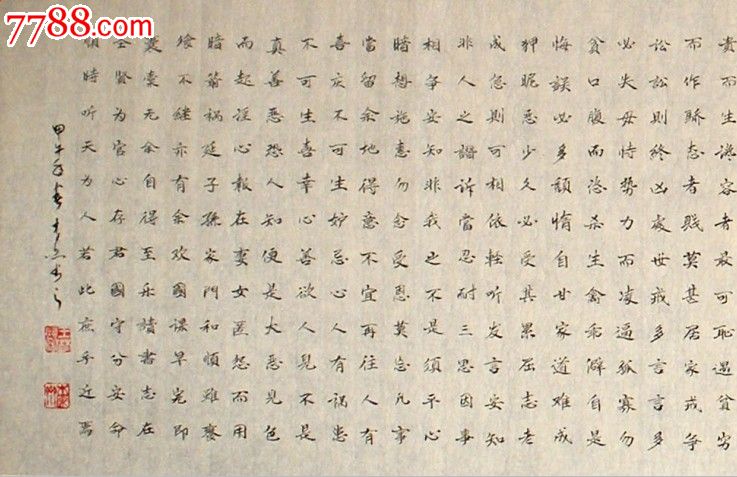 7788.com
貴而生谗容者最可恥遇貧窮
而作驕态者賤莫甚居家戒争
訟訟則終凶處世戒多言言多
必失毋恃勢力而凌逼孤寡勿
貪口腹而恣杀生禽乖僻自是
悔誤必多頹惰自甘家道難成
狎昵恶少久必受其累屈志老
成急則可相依轻听发言安知
非人之譖訴當忍耐三思因事
相争安知非我之不是須平心
暗想施惠勿念受恩莫忘凡事
當留余地得意不宜再往人有
喜庆不可生妒忌心人有祸患
不可生喜幸心善欲人見不是
真善恶恐人知便是大恶見色
而起淫心報在妻女匿怨而用
暗箭祸延子孫家門和順雖饔
飧不継亦有余欢國课早完即
囊橐无余自得至乐讀書志在
圣賢为官心存君國守分安命
順時听天为人若此庶乎近焉
甲午年春